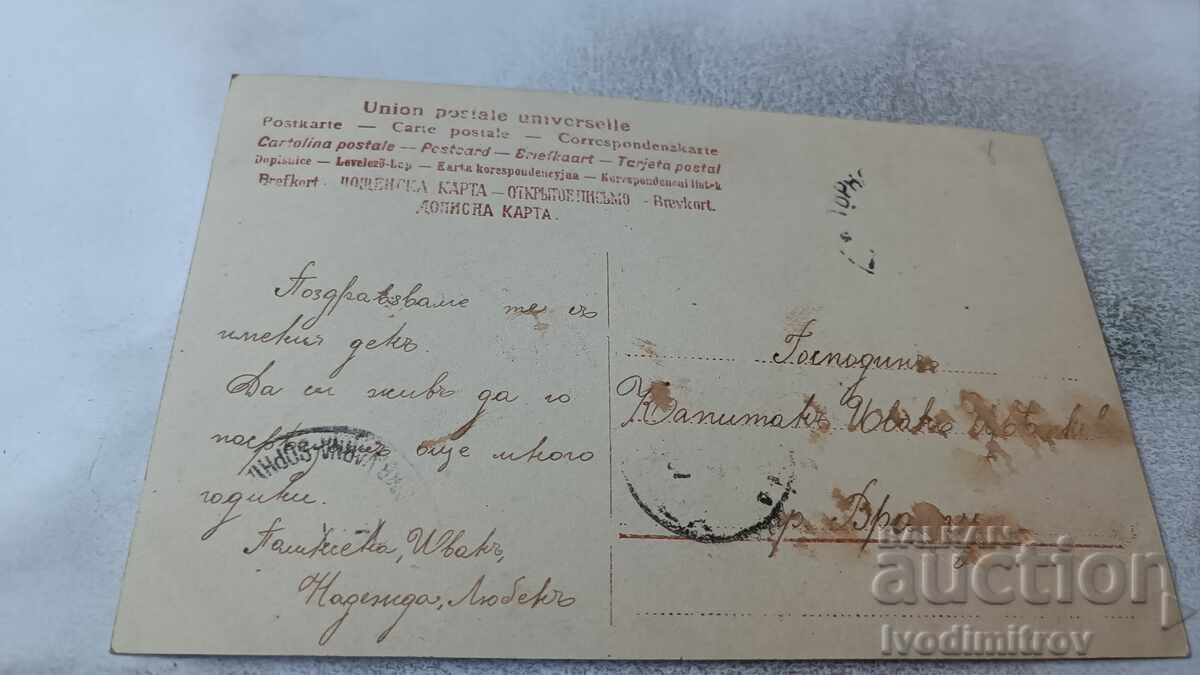 Union postale universelle
Postkarte — Carte postale — Correspondenskarte
Cartolina postale — Postcard — Briefkaart — Tarjeta postal
Dopisnice — Levelező-Lap — Karta korespondencyjna — Korespondencni listek
Brefkort - ПОЩЕНСКА КАРТА — ОТКРЫТОЕ ПИСЬМО - Brevkort.
ДОПИСНА КАРТА.
Поздравяваме те съ
имения день.
Да си живъ да го
още много
години.
Иванъ,
Надежда, Любенъ
Господинъ
Капитанъ Иванъ
гр. Враца
VARNA-SOPHIA
BALKAN
auction
Ivodimitrov